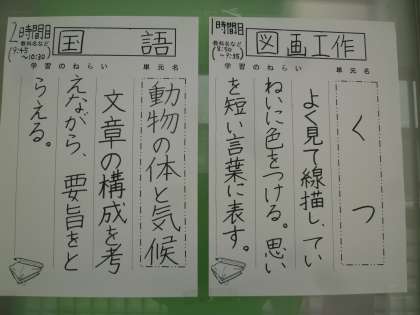 時間目
教科名など
(8:50
~9:35)
図画工作
学習のねらい 単元名
くつ
よく見て線描し、てい
ねいに色をつける。思い
を短い言葉に表す。
2時間目
教科名など
(9:45
~10:30)
国語
学習のねらい 単元名
動物の体と気候
文章の構成を考
えながら、要旨をと
らえる。